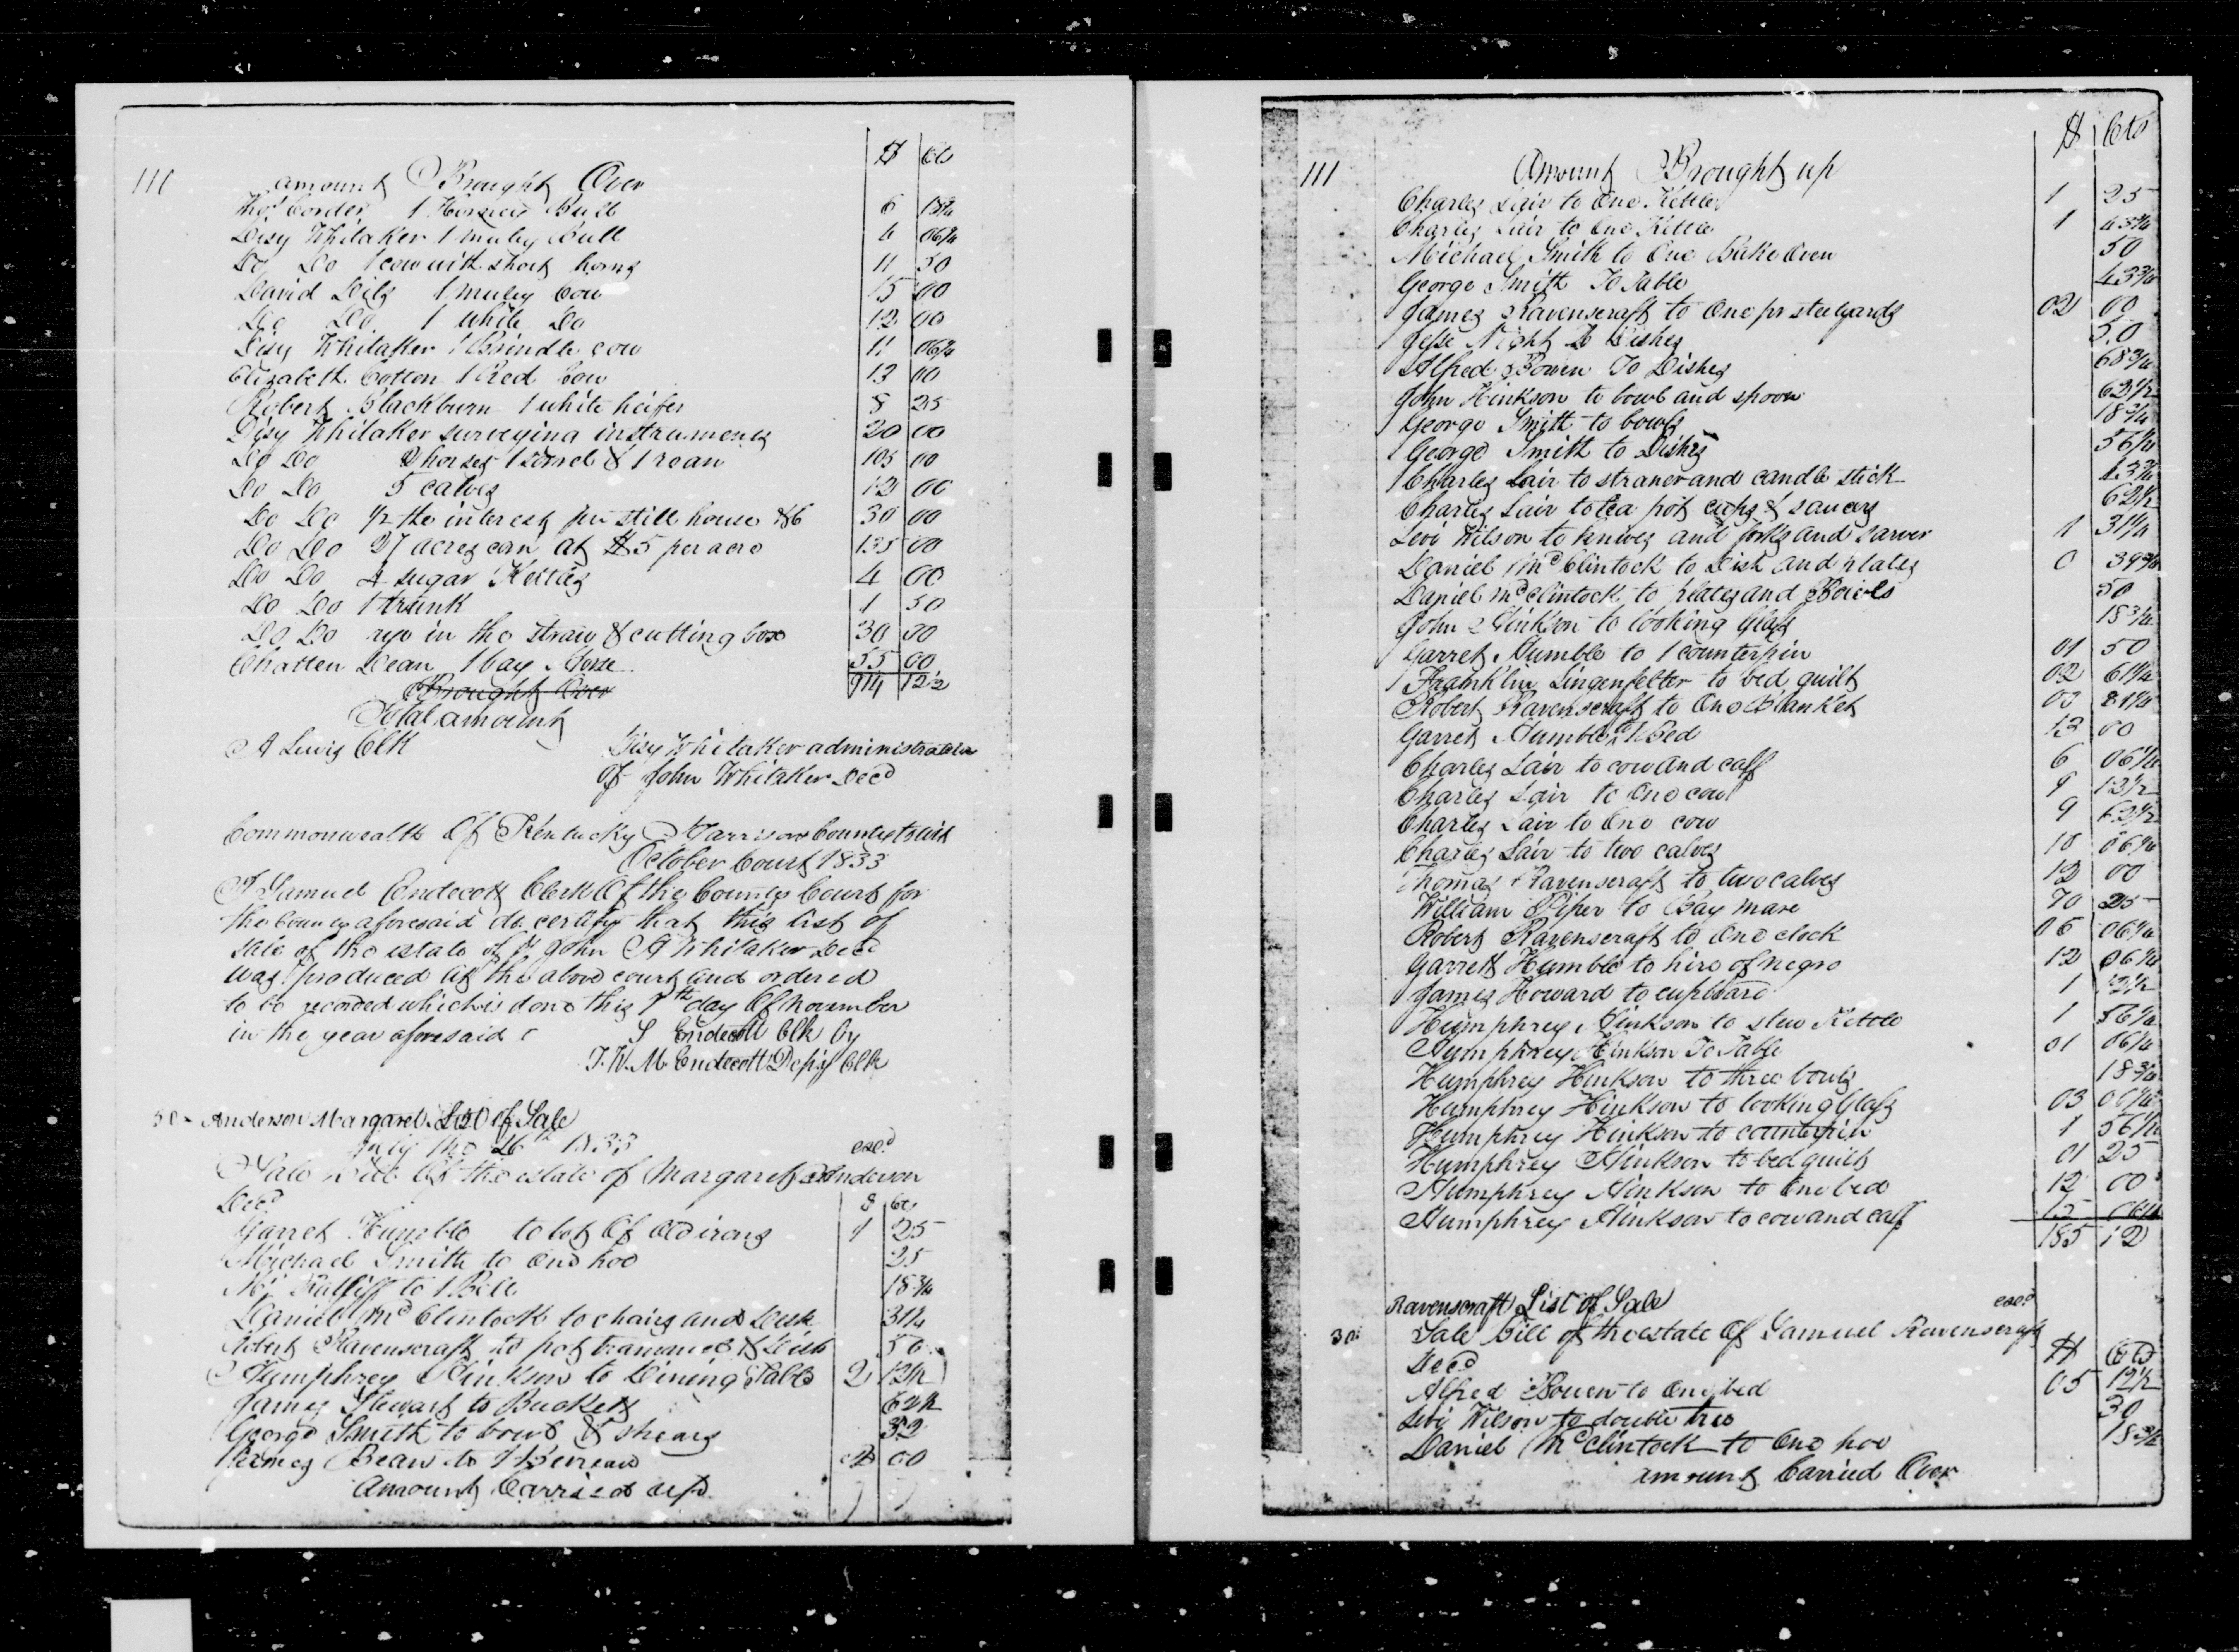 110
$ cts
Amount Brought Over
Thos Corder 1 Horned Bull 6 18¾
Disy Whitaker 1 muley Bull 4 06¼
Do Do 1 cow with short horns 11 50
David Dils 1 muley Cow 15 00
Do Do 1 white Do 12 00
Disy Whitaker 1 Brindle cow 11 06¼
Elizabeth Cotton 1 Red Cow 13 00
Robert Blackburn 1 white heifer 8 25
Disy Whitaker surveying instruments 20 00
Do Do 2 horses 1 sorrel & 1 roan 105 00
Do Do 5 calves 12 00
Do Do ½ the interest in still house &c 30 00
Do Do 27 acres corn at $5 per acre 135 00
Do Do 4 sugar Kettles 4 00
Do Do 1 trunk 1 50
Do Do rye in the straw & cutting box 30 00
Chatten Dean 1 bay Horse 55 00
Brought Over 914 12½
Total amount
A Lewis Clk Disy Whitaker administrator
of John Whitaker Decd
Commonwealth Of Kentucky Harrison County to wit
October Court 1833
I Samuel Endecott Clerk Of the County Court for
the County aforesaid do certify that this list of
sale of the estate of John A Whitaker Decd
was produced at the above court and ordered
to be recorded which is done this 1th day Of November
in the year aforesaid
S Endecott Clk by
J. W. M. Endecott Depty Clk
30 Anderson Margaret List of Sale
July the 26th 1833 exd
Sale Bill Of the estate of Margaret Anderson
Decd $ cts
Garret Humble to lot Of Old irons 1 25
Michael Smith to One hoe 25
Mr Ratliff to 1 Bell 18¾
Daniel McClintock to chairs and Desk 31¼
Robert Ravenscraft to pot trammel & 50
Humphrey Hinkson to Dining Table 2 12½
James Stewart to Buckets 62½
George Smith to bowl & shears 32
James Bean to 1 Bureau 00
Amount Carried up
111
$ Cts
Amount Brought up
Charles Lair to One Kettle 1 25
Charles Lair to One Kettle 1 43¾
Michael Smith to One Bake Oven 50
George Smith To Table 43¾
James Ravenscraft to One pr steelyards 02 00
Jesse Night To Dishes 50
Alfred Bowen To Dishes 68¾
John Hinkson to bowl and spoon 62½
George Smith to bowls 18¾
George Smith to Dishes 56¼
Charles Lair to straner and candle stick 43¾
Charles Lair to tea pot cups & saucers 62½
Levi Wilson to knives and forks and sarver 1 31¼
Daniel McClintock to Dish and plates 0 39¾
Daniel McClintock to plates and Bowls 50
John Hinkson to looking Glass 18¾
Garret Humble to 1 counterpin 01 50
Franklin Lingenfelter to bed quilt 02 61¼
Robert Ravenscraft to One Blanket 00 81¼
Garret Humble 1 Bed 13 00
Charles Lair to cow and calf 6 06¼
Charles Lair to One cow 9 12½
Charles Lair to One cow 9 62½
Charles Lair to two calves 10 06¼
Thomas Ravenscraft to two calves 12 00
William Piper to Bay mare 70 25
Robert Ravenscraft to One clock 06 06¼
Garrett Humble to hire of negro 12 06¼
James Howard to cupboard 1 12½
Humphrey Hinkson to stew Kettle 1 56¼
Humphrey Hinkson To Table 01 06¼
Humphrey Hinkson to three bowls 18¾
Humphrey Hinkson to looking Glass 03 00¼
Humphrey Hinkson to counterpin 1 56¼
Humphrey Hinkson to bed quilt 01 25
Humphrey Hinkson to One bed 12 00
Humphrey Hinkson to cow and calf 15 06¼
185 12
Ravenscraft List of Sale exd
30 Sale Bill of the estate Of Samuel Ravenscraft
Decd $ Cts
Alfred Bowen to One bed 05 12½
Levi Wilson to double tree 30
Daniel McClintock to One hoe 18¾
Amount Carried Over